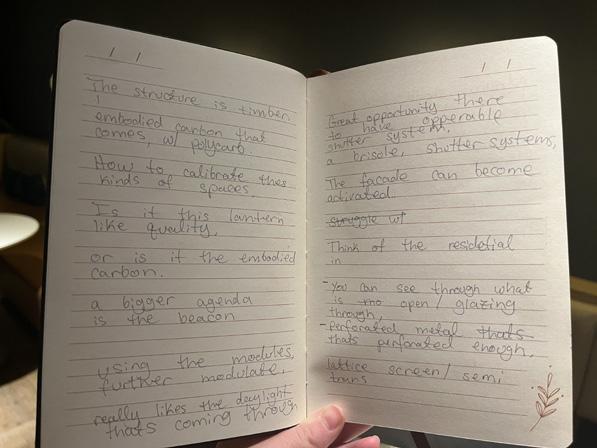 / /
The structure is timber.
embodied carbon that
comes, w/ polycarb.
How to calibrate thes
kinds of spaces.
Is it this lantern
like quality,
or is it the embodied
carbon.
a bigger agenda
is the beacon
using the modules,
further modulate,
really likes the daylight
thats coming through
/ /
Great opportunity there
to have opperable
shutter systems,
a brisole, shutter systems,
The facade can become
activated.
Struggle w/
Think of the residetial
in
- You can see through what
is open / glazing
through,
- Perforated metal thats
thats perforated enough.
lattice screen / semi